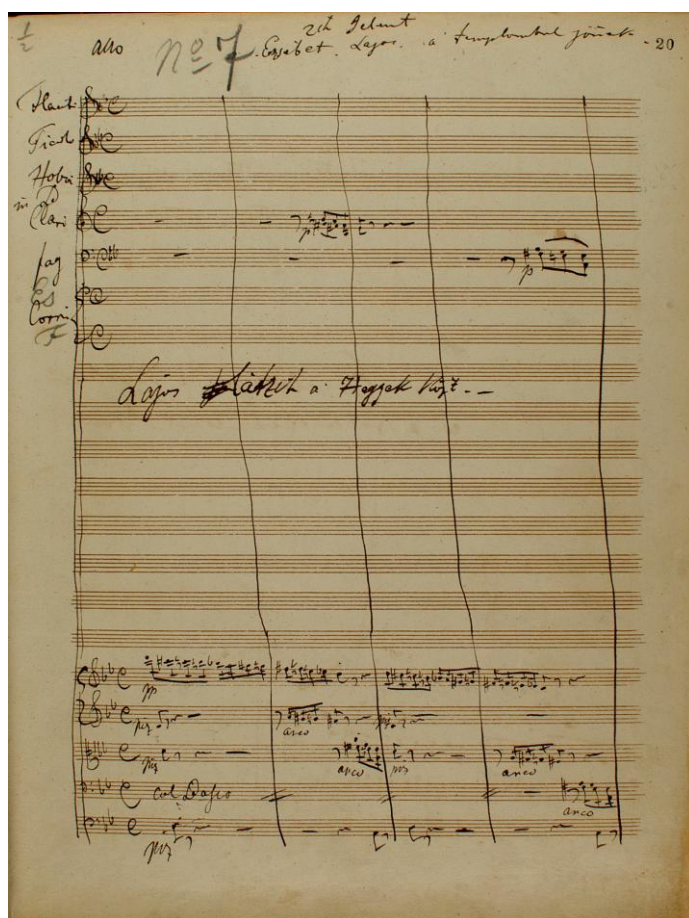 1/2
No 7
2ik Jelenet
Erzsébet. Lajos. a' templombul jönnek - 20
Flauti
Hobo
in B
Clari
fag
Es
Corni
F
Lajos a' Hegyek közt. --
p
p
pp
piz
arco
piz
piz
arco
piz
arco
col Basso
arco
piz